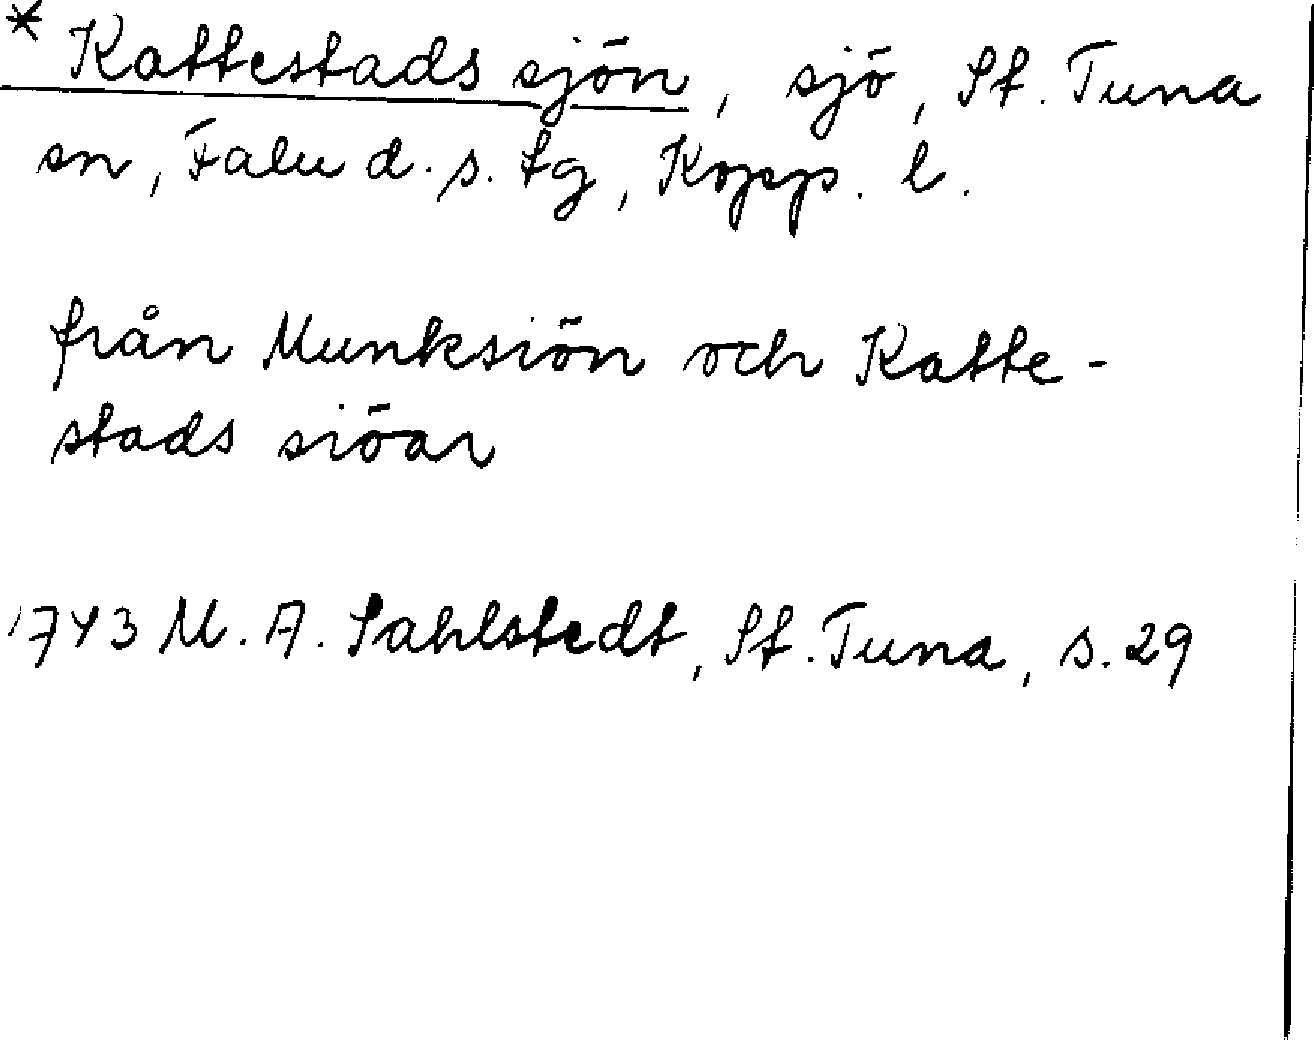 * Kattestads sjön, sjö, St. Tuna
sn, Falu d. s. tg, Kopp. l.
från Munksiön och Katte-
stads siöar
1743 M. A. Sahlstedt, St. Tuna, s. 29